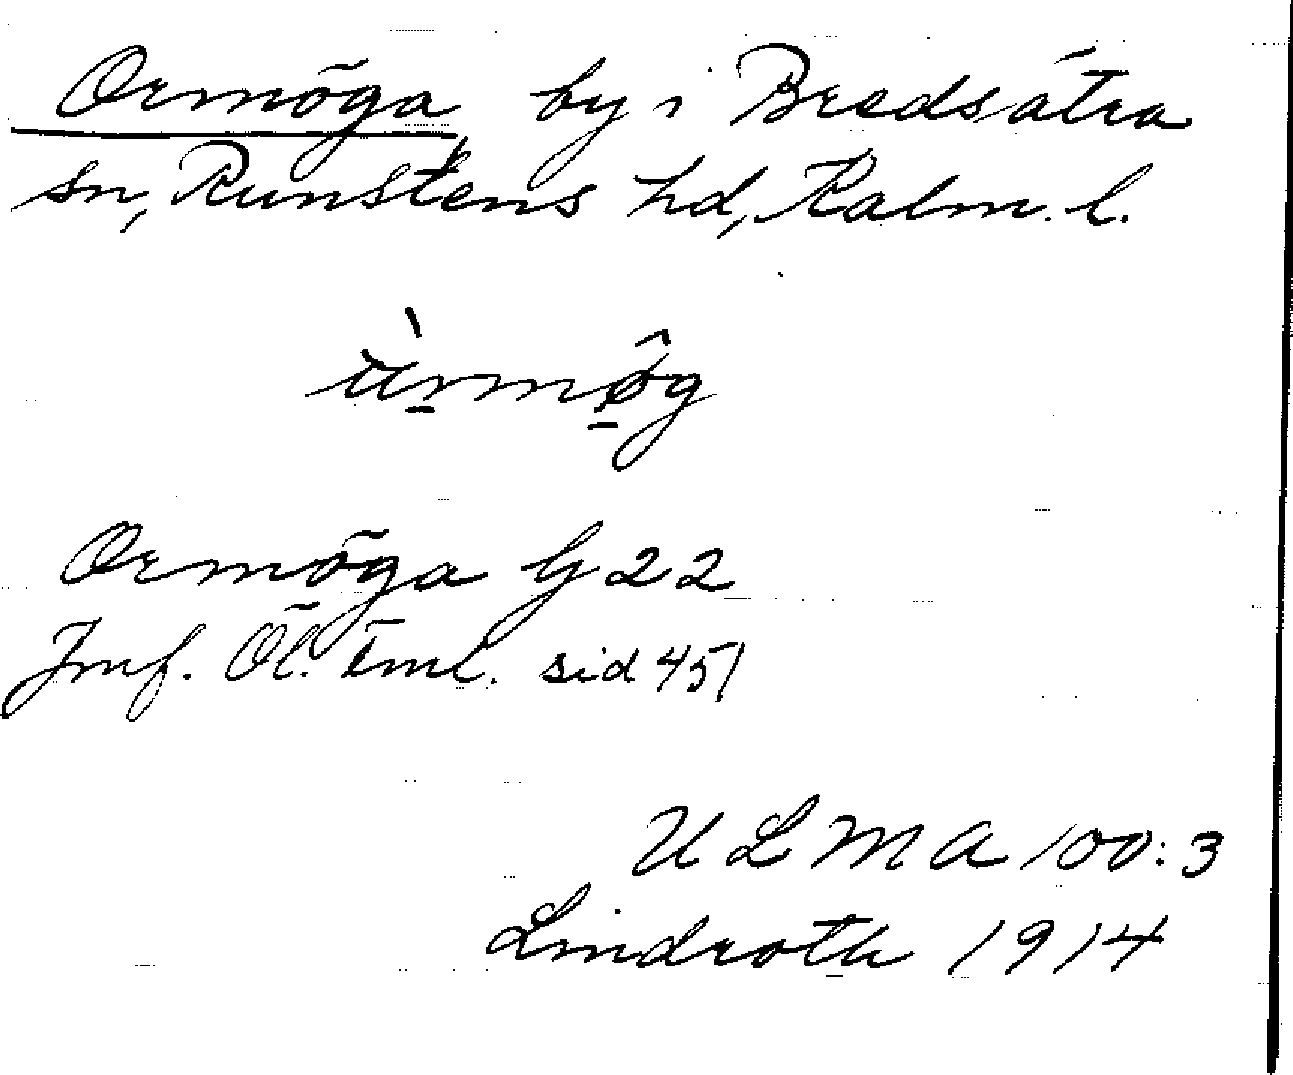 Ormöga by i Bredsätra
sn, Runstens hd, Kalm. l.
ùrmö̂g
Ormöga G 22
Jmf. Öl. Fml. sid 451
ULMA 100:3
Lindroth 1914